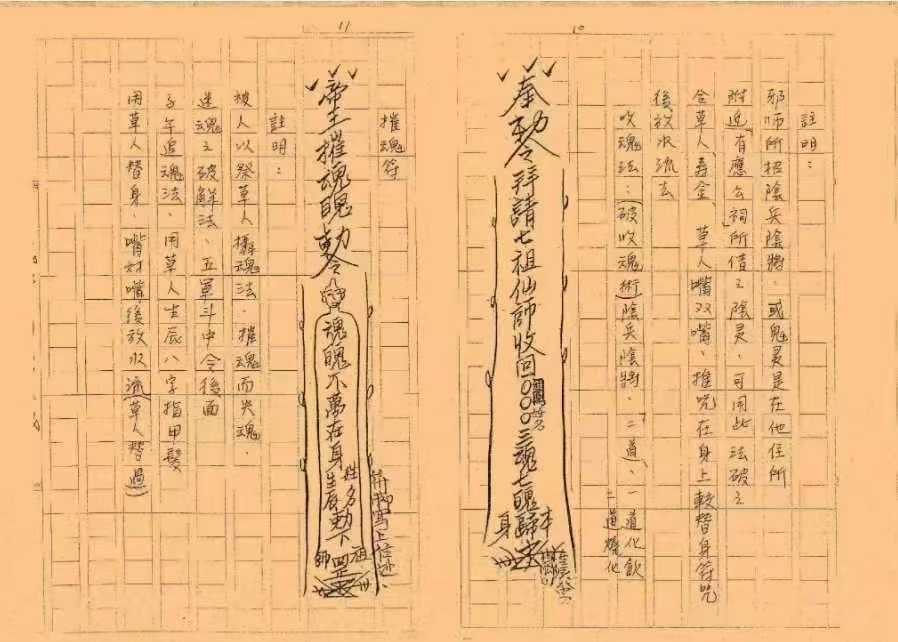 10
註明：
邪師所招陰兵陰將，或鬼灵是在他住所
附近（有應公祠所借之陰灵，可用此法破之
令草人壽金、草人嘴双嘴、推咒在身上較替身符咒
後放水流去
收魂法：（破收魂術）陰兵陰將、二道、一道化飲
一道燒化
奉勅令拜請七祖仙師收回〇〇〇三魂七魄歸本身
姓名
11
摧魂符
帝王摧魂魄勅令
魂魄不萬在身
姓名
生辰
勅下
祖師
註明：
被人以祭草人攝魂法，摧魂而失魂，
迷魂之破解法、五軍斗中令後面
子午追魂法，用草人生辰八字指甲髮
用草人替身，嘴对嘴後放水流（草人替過）